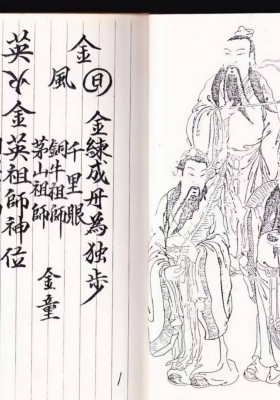 金
㊐金練成丹為独步
風
千里眼
銅牛祖師
茅山祖師
金童
英火金英祖師神位
1